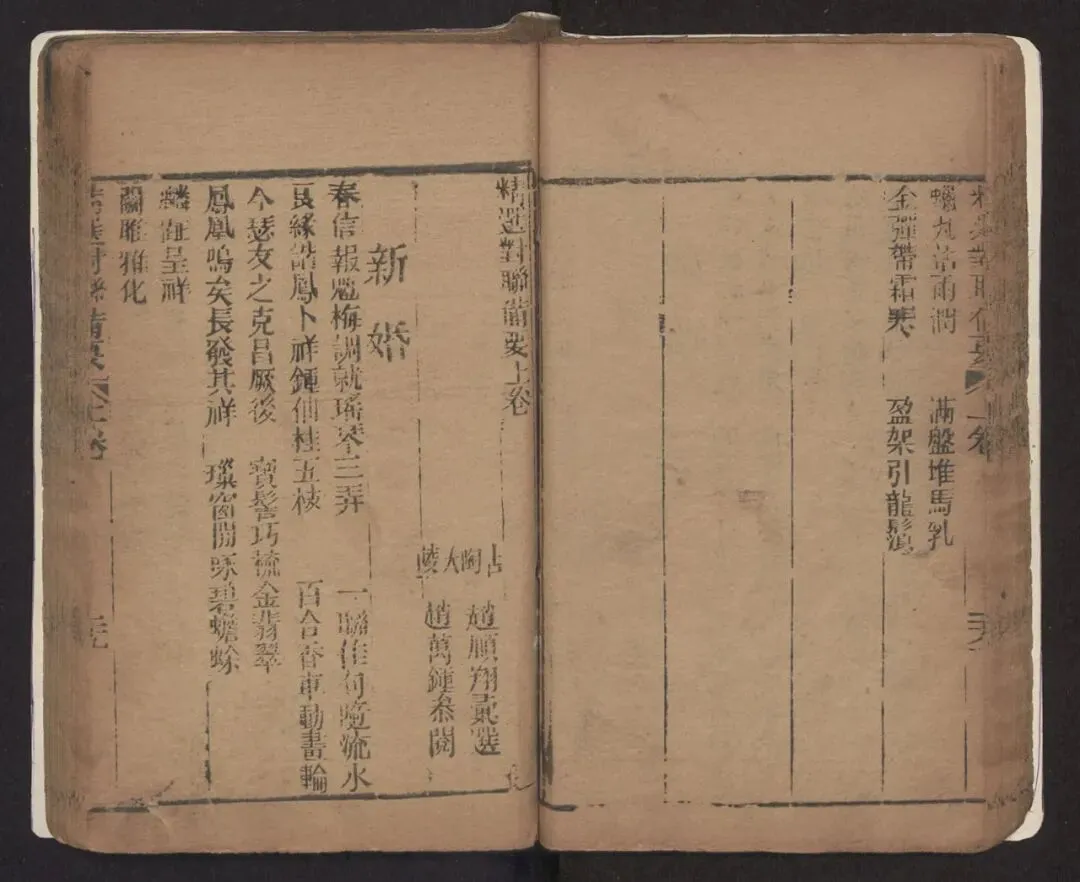 蠟丸沾雨潤 滿盤堆馬乳
金彈帶霜寒 盈架引龍鬚
精選對聯備要上卷
古陶 趙順翔彚選
大陵 趙萬鐘叅閱
新婚
春信報魁梅調就瑤琴三弄 一聯佳句隨流水
良緣諧鳳卜祥鍾仙桂五枝 百合香車動畫輪
今瑟友之克昌厥後 寶髻巧梳金翡翠
鳳凰鳴矣長發其祥 璨窗開琢碧蟾蜍
麟趾呈祥
關雎雅化
精選對聯備要 上卷